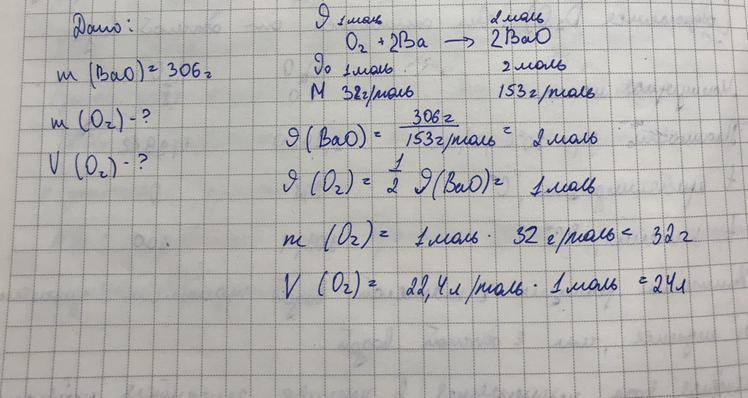 Дано:
m (BaO) = 306г
m (O₂) - ?
V (O₂) - ?
ϑ 1моль 2моль
O₂ + 2Ba → 2BaO
ϑ₀ 1моль 2моль
M 32г/моль 153г/моль
ϑ (BaO) = 306г / 153г/моль = 2моль
ϑ (O₂) = 1/2 ϑ(BaO) = 1моль
m (O₂) = 1моль · 32 г/моль = 32г
V (O₂) = 22,4л/моль · 1моль = 24л